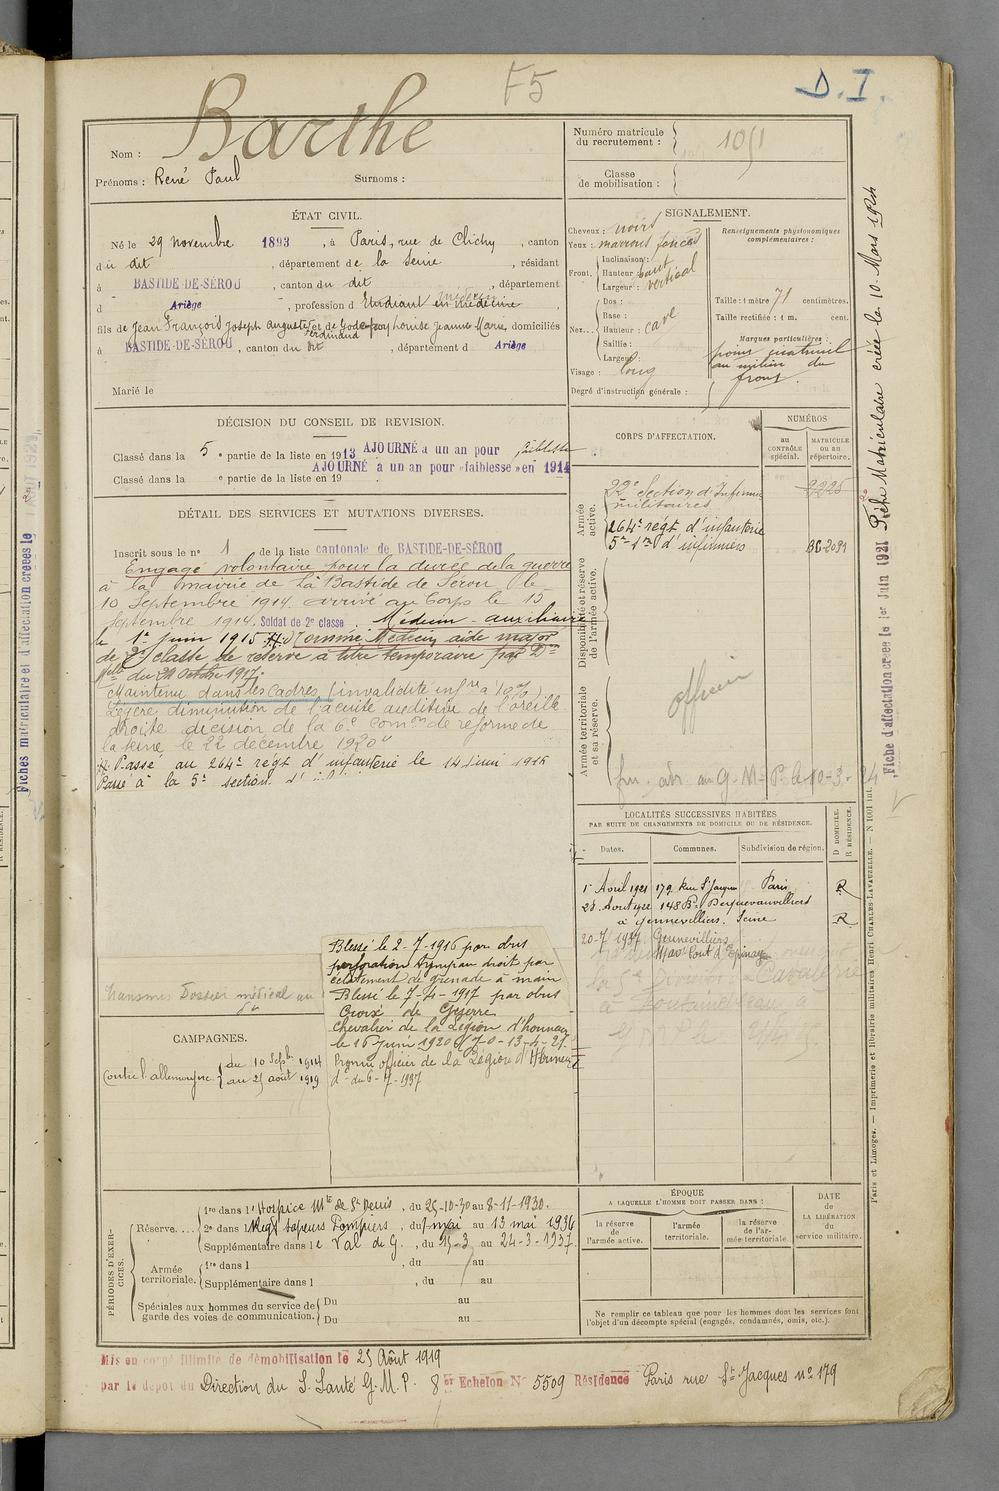 F5
D. I.
Nom : Barthe
Prénoms : René Paul Surnoms :
Numéro matricule du recrutement : 1051
Classe de mobilisation :
ÉTAT CIVIL.
Né le 29 novembre 1893, à Paris, rue de Clichy, canton
du dit, département de la Seine, résidant
à BASTIDE-DE-SÉROU, canton du dit, département
d Ariège, profession d Etudiant en médecine médecin
fils de Jean François Joseph Auguste Ferdinand et de Louise Jeanne Marie, domiciliés
à BASTIDE-DE-SÉROU, canton du dit, département d Ariège
Marié le
SIGNALEMENT.
Cheveux : noirs
Yeux : marrons foncés
Front. Inclinaison :
Hauteur : haut
Largeur : vertical
Nez... Dos :
Base :
Hauteur : cave
Saillie :
Largeur :
Visage : long
Renseignements physionomiques complémentaires :
Taille : 1 mètre 71 centimètres.
Taille rectifiée : 1 m. cent.
Marques particulières :
au milieu du
front.
Degré d'instruction générale :
DÉCISION DU CONSEIL DE REVISION.
Classé dans la 5e partie de la liste en 1913 AJOURNÉ à un an pour faiblesse
AJOURNÉ à un an pour «faiblesse» en 1914
Classé dans la e partie de la liste en 19
DÉTAIL DES SERVICES ET MUTATIONS DIVERSES.
Inscrit sous le n° 1 de la liste cantonale de BASTIDE-DE-SÉROU
Engagé volontaire pour la durée de la guerre
à la mairie de La Bastide de Sérou le
10 Septembre 1914. arrivé au Corps le 15
Septembre 1914. Soldat de 2e classe. Médecin auxiliaire
le 1er juin 1915. Nommé Médecin aide major
de 2e classe de réserve à titre temporaire par Don
Mtelle du 20 Octobre 1917.
Maintenu dans les cadres (invalidité infre à 10%)
Légère diminution de l'acuité auditive de l'oreille
droite décision de la 6e Comon de réforme de
la Seine le 22 décembre 1920
Passé au 264e régt d'infanterie le 14 juin 1916
Passé à la 5e section
transmis Dossier médical au
Blessé le 2-7-1916 par obus
perforation tympan droit par
éclatement de grenade à main
Blessé le 7-4-1917 par obus
Croix de Guerre
Chevalier de la Légion d'honneur
le 16 Juin 1920 JO-13-4-21
Promu officier de la Légion d'Honneur
d. du 6-7-1937
CAMPAGNES.
Contre l'allemagne du 10 Septbre 1914
au 25 août 1919
CORPS D'AFFECTATION.
NUMÉROS
au CONTRÔLE spécial.
MATRICULE ou au répertoire.
Armée active.
22e Section d'Infirmiers militaires 9225
264e régt d'infanterie
5e Son d'infirmiers
Disponibilité et réserve de l'armée active.
Armée territoriale et sa réserve.
officier
LOCALITÉS SUCCESSIVES HABITÉES
PAR SUITE DE CHANGEMENTS DE DOMICILE OU DE RÉSIDENCE.
Dates. Communes. Subdivision de région. D DOMICILE. R RÉSIDENCE.
1 Avril 1921 179 Rue St Jacques Paris R
28 Aout 1922 148 Bd
à Gennevilliers. Seine R
20-7 1937 Gennevilliers
av. Pont d'Epinay
PÉRIODES D'EXERCICES.
Réserve....
1re dans l' Hospice Mte de St Denis, du 25-10-30 au 8-11-1930.
2e dans Regt Sapeurs Pompiers, du 1 mai au 13 mai 1936
Supplémentaire dans le Val de G., du 15-3 au 24-3-1937
Armée territoriale.
1re dans l , du au
Supplémentaire dans l , du au
Spéciales aux hommes du service de garde des voies de communication.
Du au
Du au
ÉPOQUE
A LAQUELLE L'HOMME DOIT PASSER DANS :
la réserve de l'armée active.
l'armée territoriale.
la réserve de l'armée territoriale
DATE de LA LIBÉRATION du service militaire.
Ne remplir ce tableau que pour les hommes dont les services font
l'objet d'un décompte spécial (engagés, condamnés, omis, etc.).
Mis en congé illimité de démobilisation le 25 Août 1919
par le dépôt du Direction du S. Santé G.M.P. 8er Echelon N° 5509 Résidence Paris rue St Jacques n° 179
Fiche Matriculaire créée le 10 Mars 1924
Fiche d'affectation créée le 1er Juin 1921
Paris et Limoges. — Imprimerie et librairie militaires Henri CHARLES-LAVAUZELLE. — N 1001 int.
Fiches matriculaire et d'affectation créées le